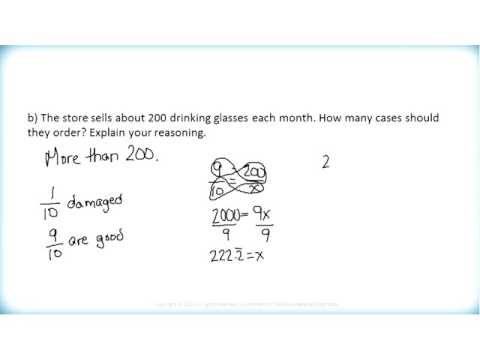 b) The store sells about 200 drinking glasses each month. How many cases should
they order? Explain your reasoning.
More than 200.
1/10 damaged
9/10 are good
9/10 = 200/x
2000/9 = 9x/9
222.2̅ = x
2